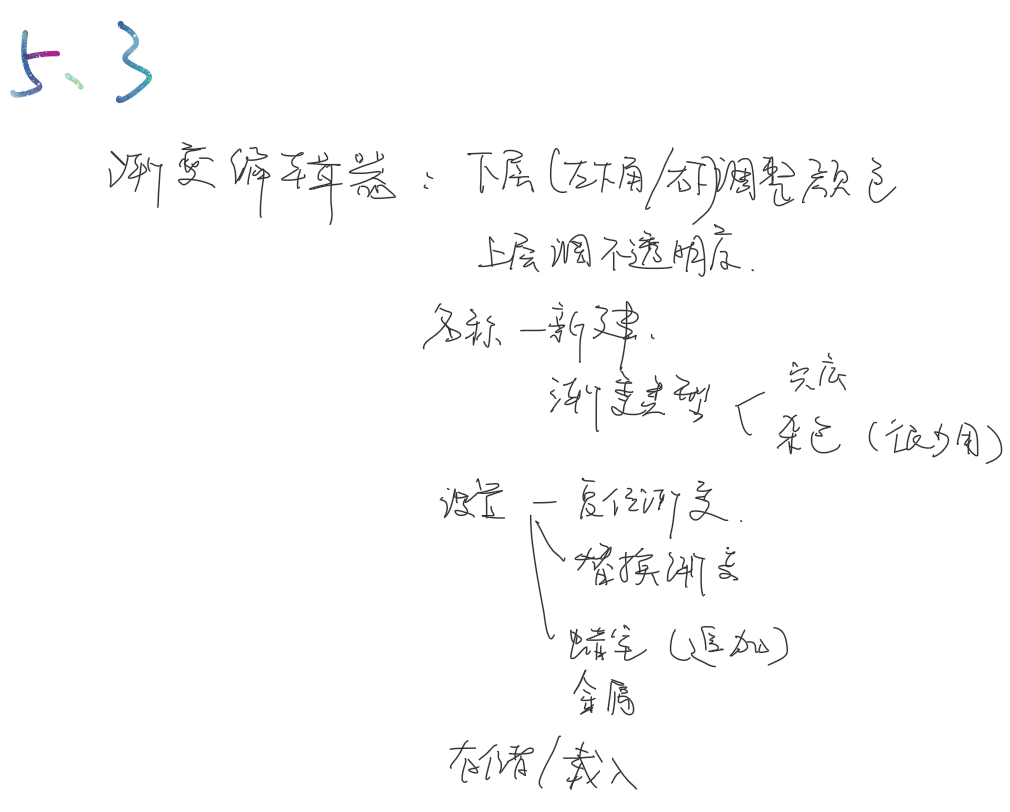 5、3
渐变编辑器：下层(左下角/右下)调整颜色
上层调不透明度.
名称 — 新建.
渐变类型 < 实底
杂色 (很少用)
设置 — 复位渐变.
替换渐变
蜡笔 (追加)
金属
存储/载入